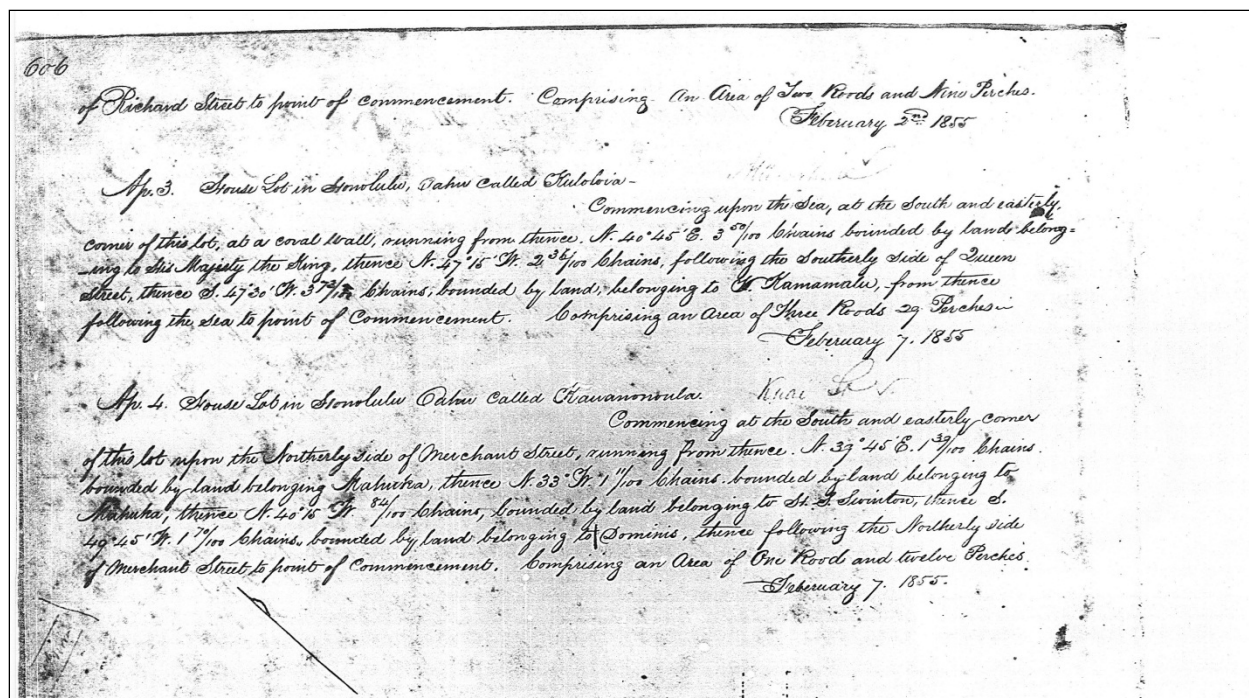 606
of Richard Street to point of commencement. Comprising An Area of Two Roods and Nine Perches.
February 2nd 1855
Ap. 3. House Lot in Honolulu, Oahu called Kuloloia-
Commencing upon the Sea, at the South and easterly
corner of this lot, at a coral wall, running from thence. N. 40° 45' E. 3 50/100 Chains bounded by lands belong=
=ing to His Majesty the King, thence N. 47° 15' W. 2 36/100 Chains, following the Southerly side of Queen
Street, thence S. 47° 30' W. 3 Chains, bounded by land, belonging to Kamamalu, from thence
following the Sea to point of Commencement. Comprising an Area of Three Roods 29 Perches
February 7. 1855
Ap. 4. House Lot in Honolulu Oahu Called Kauanonoula.
Commencing at the South and easterly corner
of this lot upon the Northerly side of Merchant Street, running from thence. N. 39° 45' E. 1 39/100 Chains.
bounded by land belonging Mahuka, thence N. 33° W. 1 11/100 Chains. bounded by land belonging to
Mahuka, thence N. 40° 15' W. 84/100 Chains, bounded by land belonging to Swinton, thence S.
49° 45' W. 1 70/100 Chains, bounded by land belonging to Dominis, thence following the Northerly side
of Merchant Street to point of Commencement. Comprising an Area of One Rood and twelve Perches.
February 7. 1855.